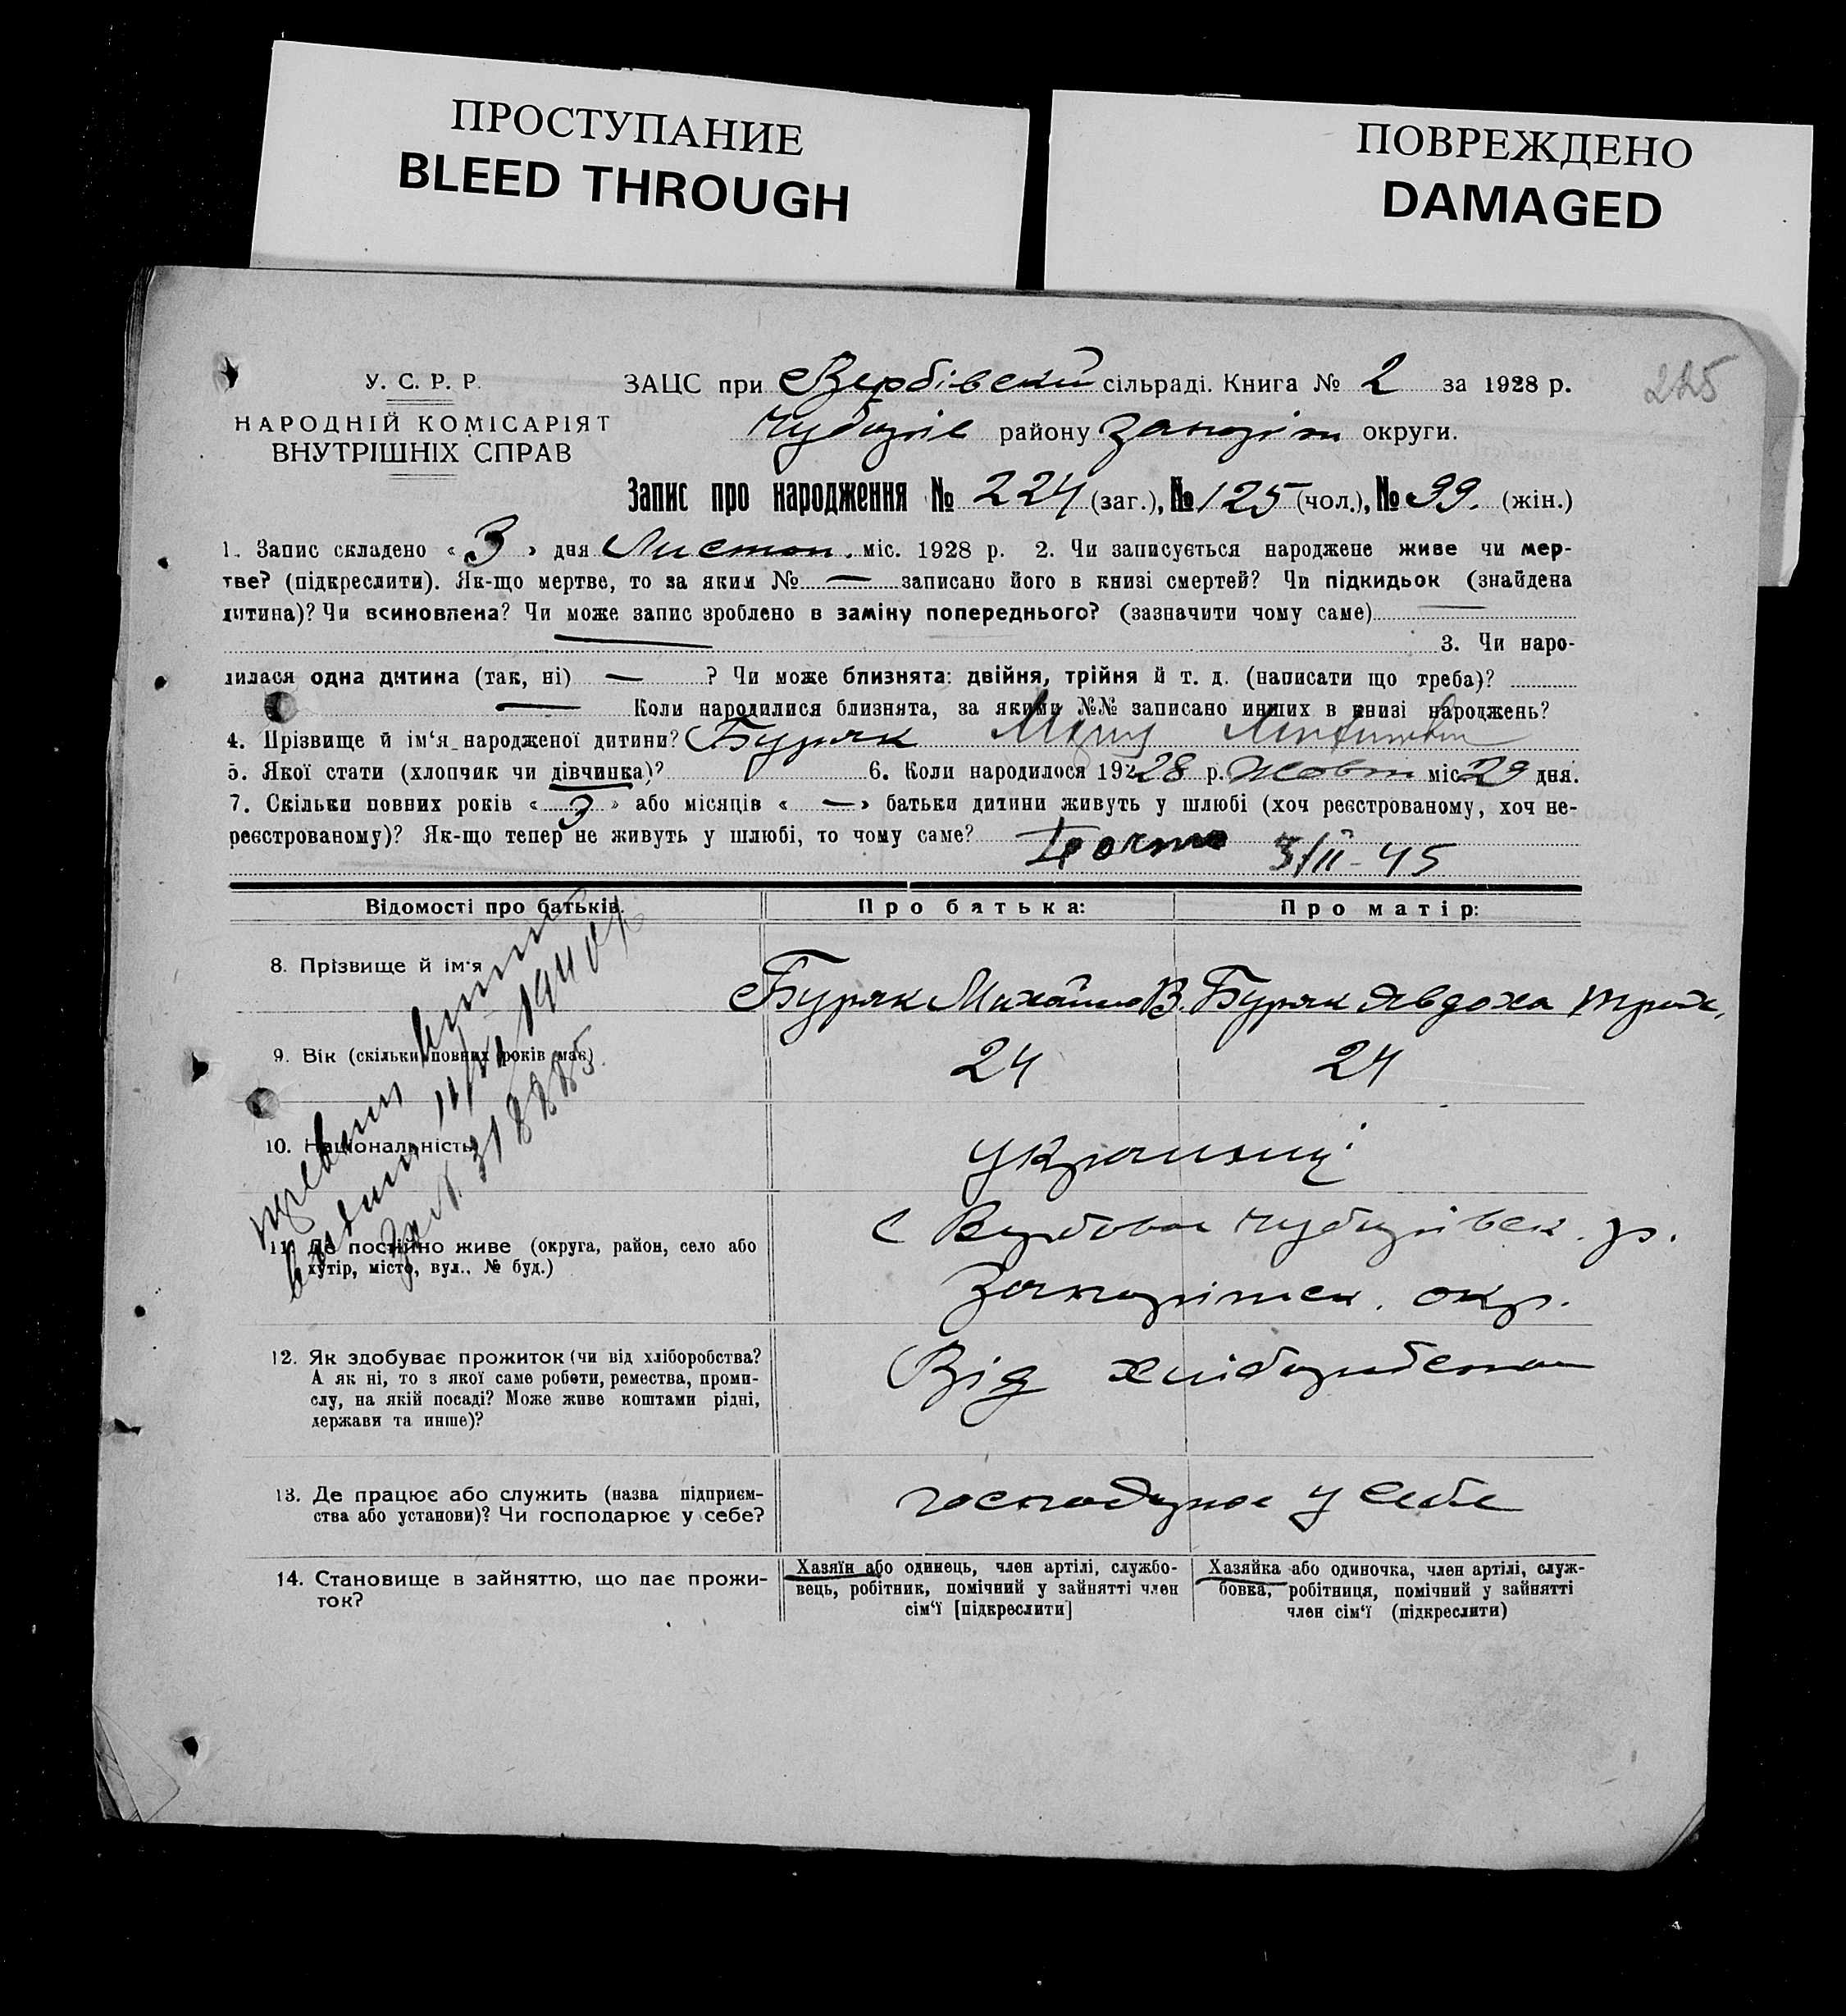 ПРОСТУПАНИЕ
BLEED THROUGH
ПОВРЕЖДЕНО
DAMAGED
225
У. С. Р. Р.
НАРОДНІЙ КОМІСАРІЯТ
ВНУТРІШНІХ СПРАВ
ЗАЦС при Вербівській сільраді. Книга № 2 за 1928 р.
району округи.
Запис про народження № 224 (заг.), № 125 (чол.), № 99. (жін.)
1. Запис складено « 3 » дня Листоп. міс. 1928 р. 2. Чи записується народжене живе чи мер-
тве? (підкреслити). Як-що мертве, то за яким № — записано його в книзі смертей? Чи підкидьок (знайдена
дитина)? Чи всиновлена? Чи може запис зроблено в заміну попереднього? (зазначити чому саме) —
— 3. Чи наро-
дилася одна дитина (так, ні) — ? Чи може близнята: двійня, трійня й т. д. (написати що треба)?
— Коли народилися близнята, за якими №№ записано инших в книзі народжень?
4. Прізвище й ім‘я народженої дитини? Буряк
5. Якої стати (хлопчик чи дівчинка)? 6. Коли народилося 192 28 р. Жовт міс. 29 дня.
7. Скільки повних років « 3 » або місяців « — » батьки дитини живуть у шлюбі (хоч реєстрованому, хоч не-
реєстрованому)? Як-що тепер не живуть у шлюбі, то чому саме?
3/II-45
Відомості про батьків. Про батька: Про матір:
8. Прізвище й ім‘я Буряк Михайло В. Буряк Явдоха Трох.
9. Вік (скільки повних років має) 24 24
10. Національність українці
11. Де постійно живе (округа, район, село або
хутір, місто, вул., № буд.)
с Вербове Чубарівськ. р.
Запоріжськ. окр.
12. Як здобуває прожиток (чи від хліборобства?
А як ні, то з якої саме роботи, ремества, проми-
слу, на якій посаді? Може живе коштами рідні,
держави та инше)?
Від хліборобства
13. Де працює або служить (назва підприєм-
ства або установи)? Чи господарює у себе?
господарює у себе
14. Становище в зайняттю, що дає прожи-
ток?
Хазяїн або одинець, член артілі, службо-
вець, робітник, помічний у зайнятті член
сім‘ї [підкреслити]
Хазяйка або одиночка, член артілі, служ-
бовка, робітниця, помічний у зайнятті
член сім‘ї (підкреслити)